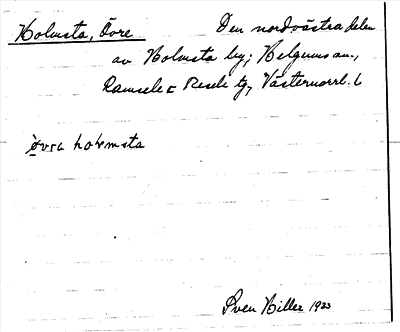 Holmsta, Övre Den nordvästra delen
av Holmsta by; Helgums sn.,
Ramsele o Resele tg, Västernorrl. l
övra holmsta
Sven Hiller 1933